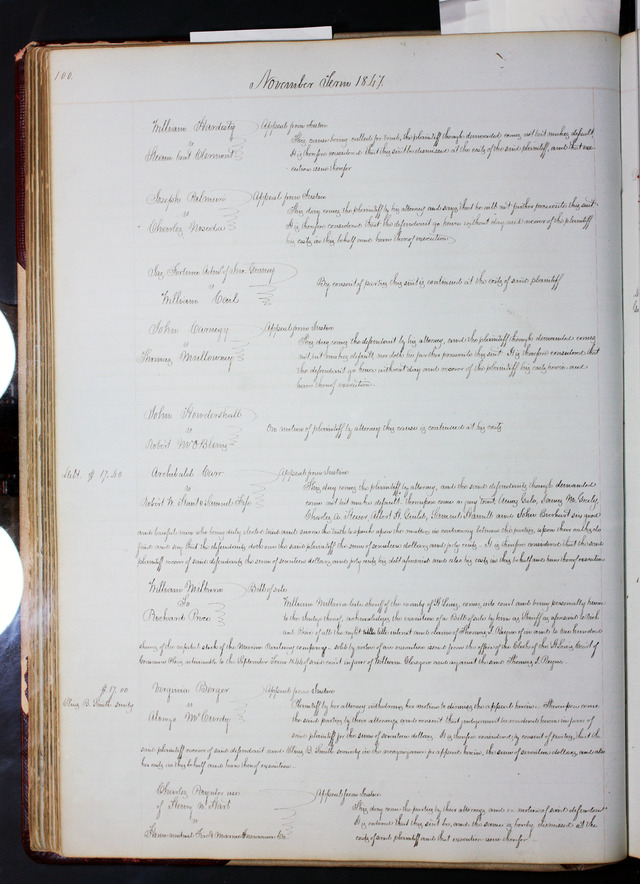 100.
November Term 1847.
William Hardesty } Appeal from Justice
vs
Steam boat Clermont
This cause being called for trial, the plaintiff though demanded comes not but makes default,
It is therefore considered that this suit be dismissed at the costs of the said plaintiff, and that exe-
cution issue therefor
Joseph } Appeal from Justice
vs
Charles Noseda
This day comes the plaintiff by his attorney and says, that he will not further prosecute this suit
It is therefore considered that the defendant go hence without day and recover of the plaintiff
his costs in this behalf and have thereof execution
Admr of
vs
William Carl
By consent of parties this suit is continued at the costs of said plaintiff
John Carnegy } Appeal from Justice
vs
Thomas Mullowney
This day comes the defendant by his attorney, and the plaintiff though demanded comes
not but makes default, nor does he further prosecute his suit. It is therefore considered that
the defendant go hence without day and recover of the plaintiff his costs herein and
have thereof execution.
John Howdershell
vs
Robert McOBlenis
On motion of plaintiff by attorney this cause is continued at his costs
Debt. $17.60
Archibald Carr } Appeal from Justice
vs
Robert W. & Samuel
This day comes the plaintiff by attorney, and the said defendants though demanded
come not but make default. Thereupon come a jury to wit,
Charles A. Albert Samuel and John six good
and lawful men who being duly elected tried and sworn the truth to speak upon the matters in controversy between the parties, upon their oaths, do
find and say that the defendants do owe the said plaintiff the sum of seventeen dollars and sixty cents. It is therefore considered that the said
plaintiff recover of said defendants the sum of seventeen dollars and sixty cents his debt aforesaid and also his costs in this behalf and have thereof execution
William Milburn } Bill of sale
To
Richard Price
William Milburn late sheriff of the county of St Louis, comes into court and being personally known
to the Judge thereof, acknowledges the execution of a Bill of sale by him as Sheriff as aforesaid to
Price of all the right title interest and claim of Thomas J. Payne of in and to one hundred
shares of the capital stock of the company - sold by virtue of an execution issued from the office of the Clerk of the St Louis Court of
Common Pleas returnable to the September Term of said court in favor of William Glasgow and against the said Thomas J. Payne.
$17.00
B. Smith security
Virginia Berger } Appeal from Justice
vs
Alonzo McCurdy
Plaintiff by her attorney withdraws her motion to dismiss the appeal herein. Thereupon come
the said parties by their attorneys and consent that judgment be rendered herein in favor of
said plaintiff for the sum of seventeen dollars. It is therefore considered by consent of parties, that the
said plaintiff recover of said defendant and B. Smith security in the recognizance for appeal herein, the sum of seventeen dollars, and also
her costs in this behalf and have thereof execution.
Charles
of Henry
vs
Marine Insurance Co. } Appeal from Justice
This day come the parties by their attorneys and on motion of said defendant
It is ordered that this suit be, and the same is hereby dismissed at the
costs of said plaintiff and that execution issue therefor